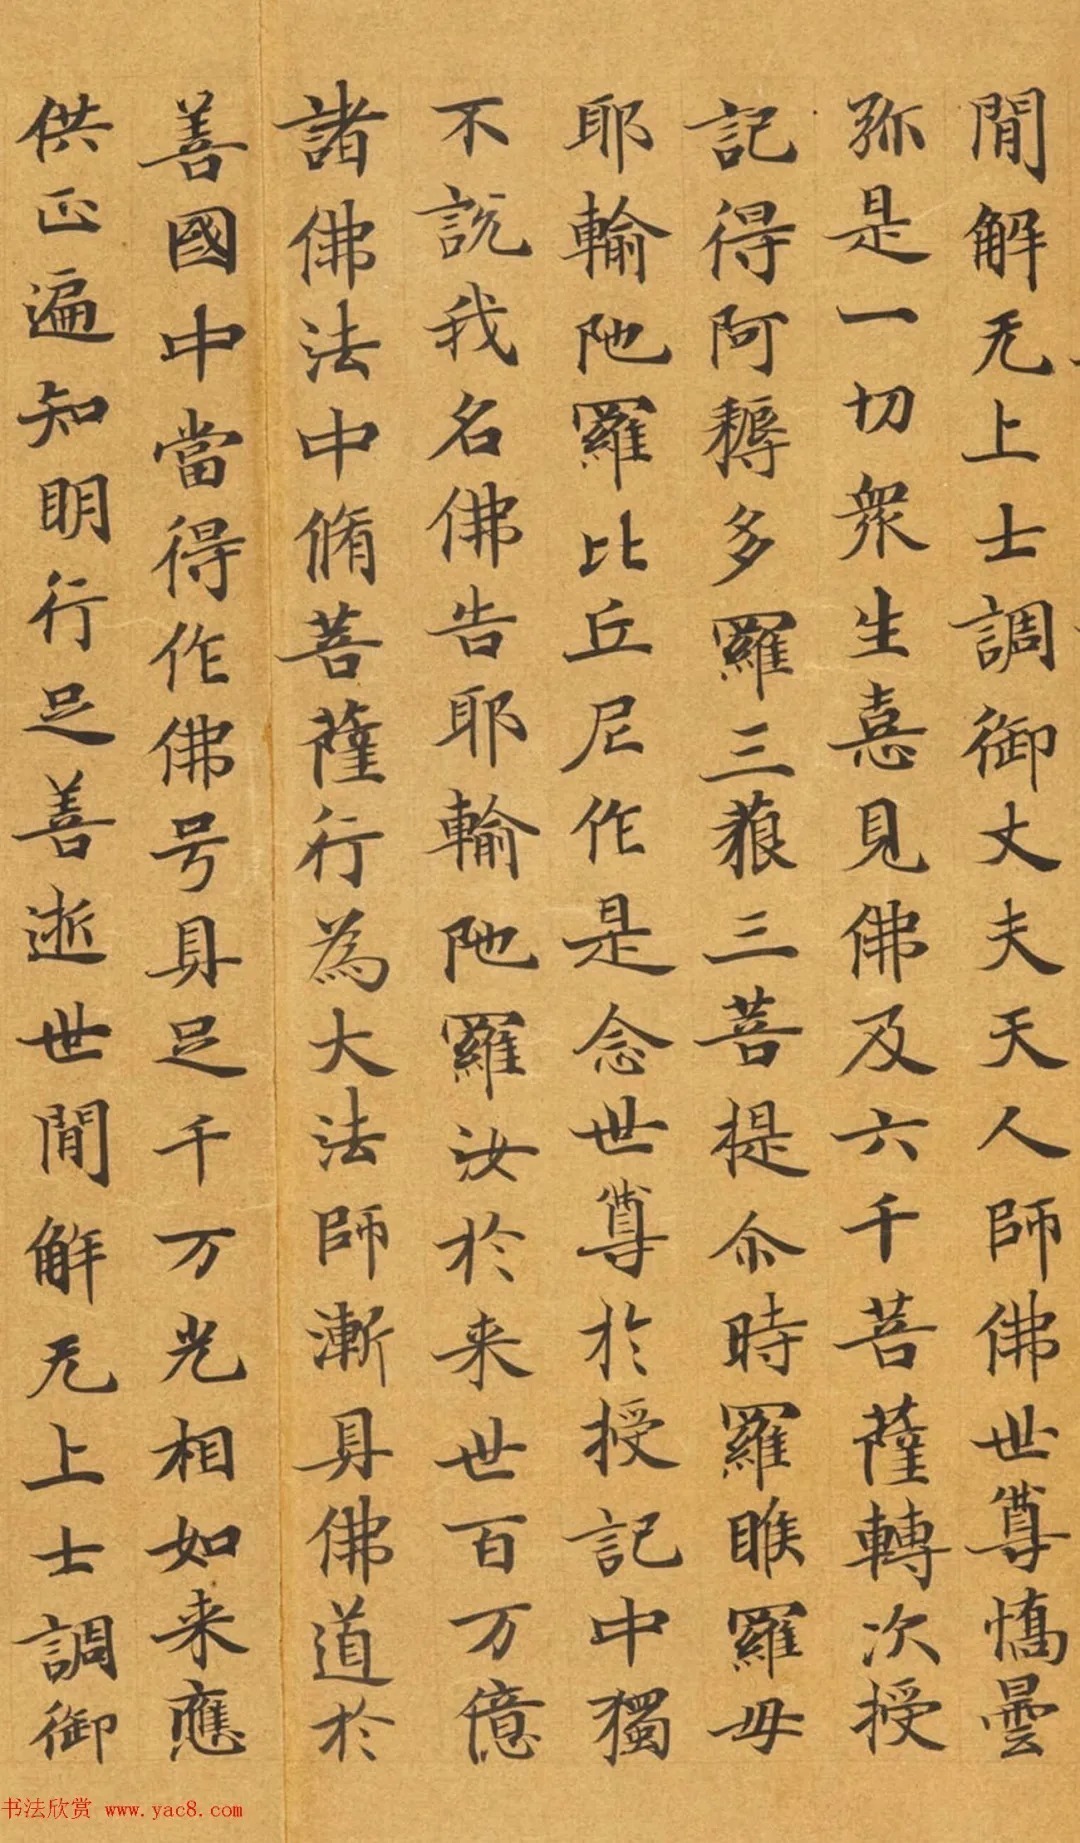 閒解无上士調御丈夫天人師佛世尊憍曇
弥是一切衆生憙見佛及六千菩薩轉次授
記得阿耨多羅三藐三菩提尒時羅睺羅母
耶輸陁羅比丘尼作是念世尊於授記中獨
不說我名佛告耶輸陁羅汝於来世百万億
諸佛法中脩菩薩行為大法師漸具佛道於
善國中當得作佛号具足千万光相如来應
供正遍知明行足善逝世閒解无上士調御
书法欣赏 www.yac8.com